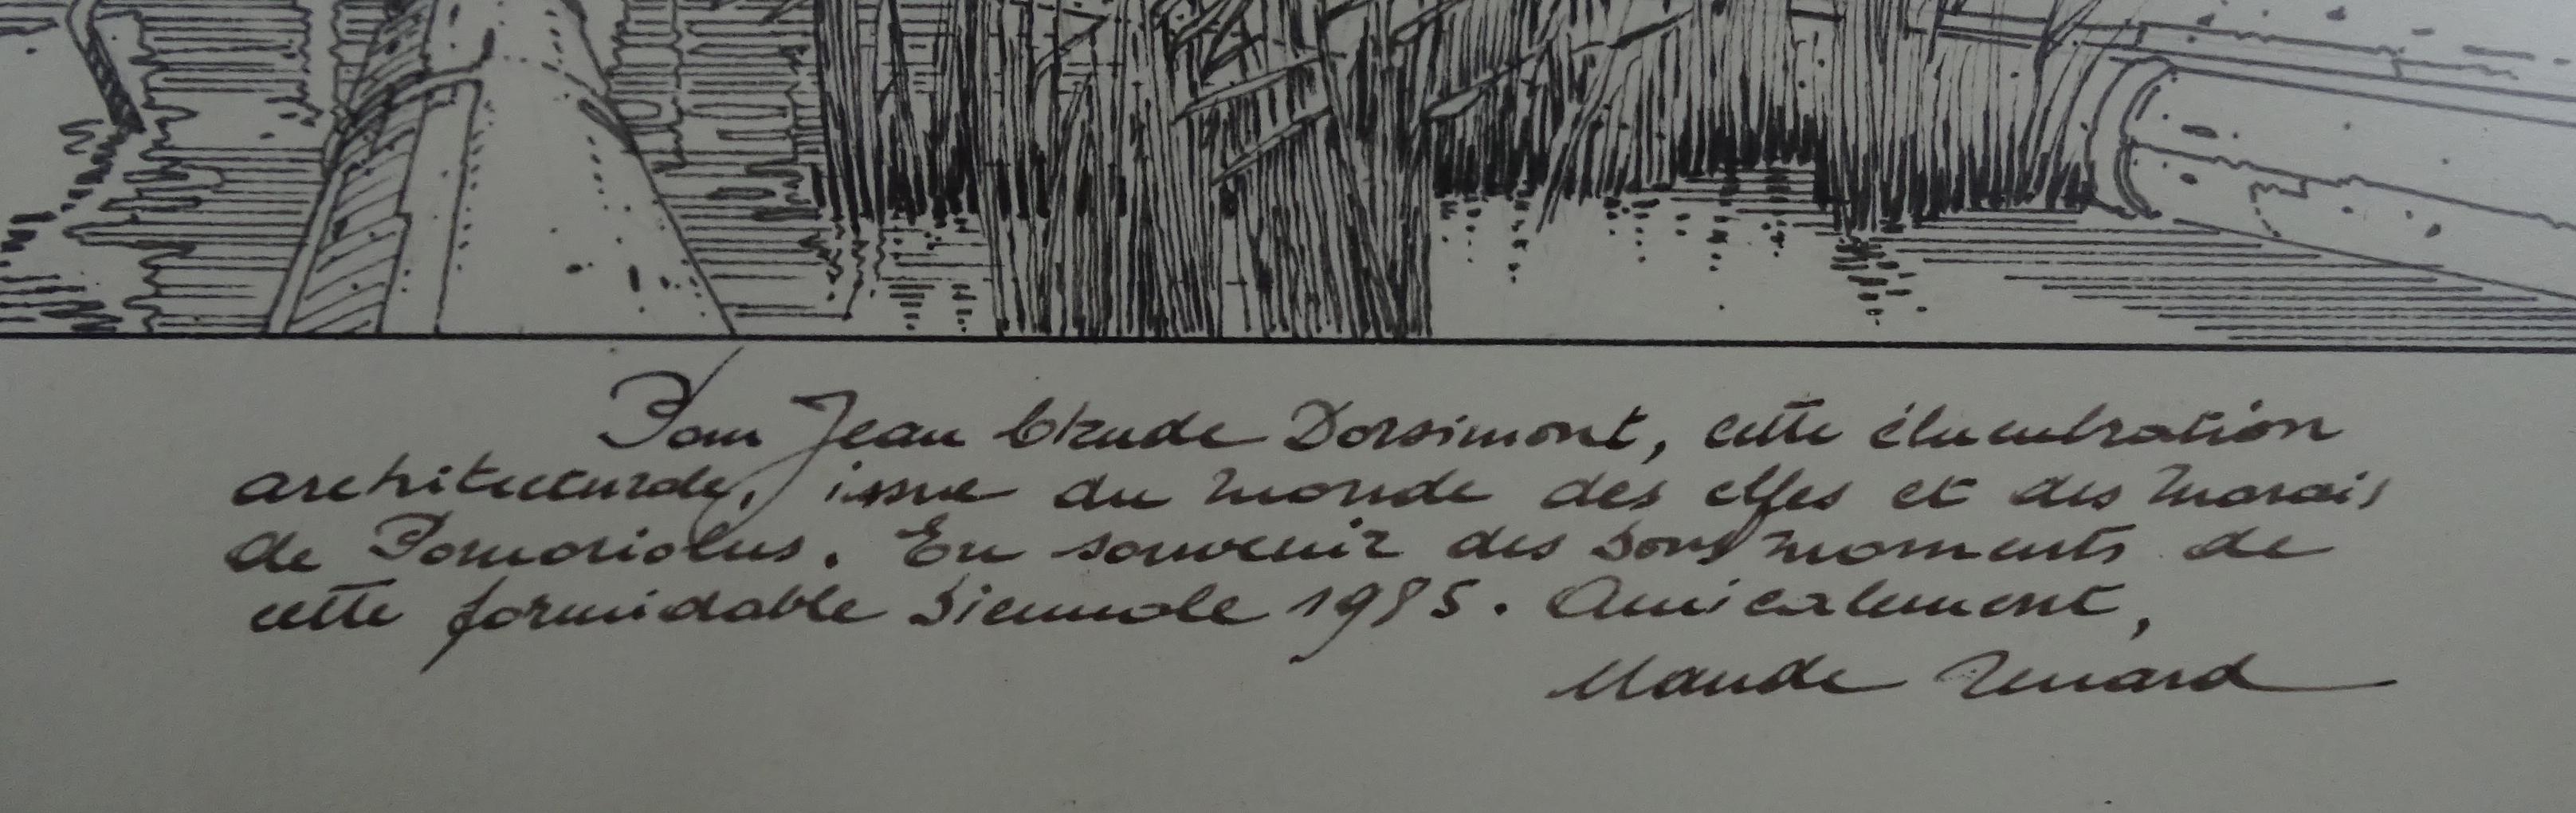 Pour Jean Claude Dorsimont, cette élucubration
architecturale, issue du monde des elfes et des marais
de Pomoriolus. En souvenir des bons moments de
cette formidable biennale 1985. Amicalement,
Claude Renard